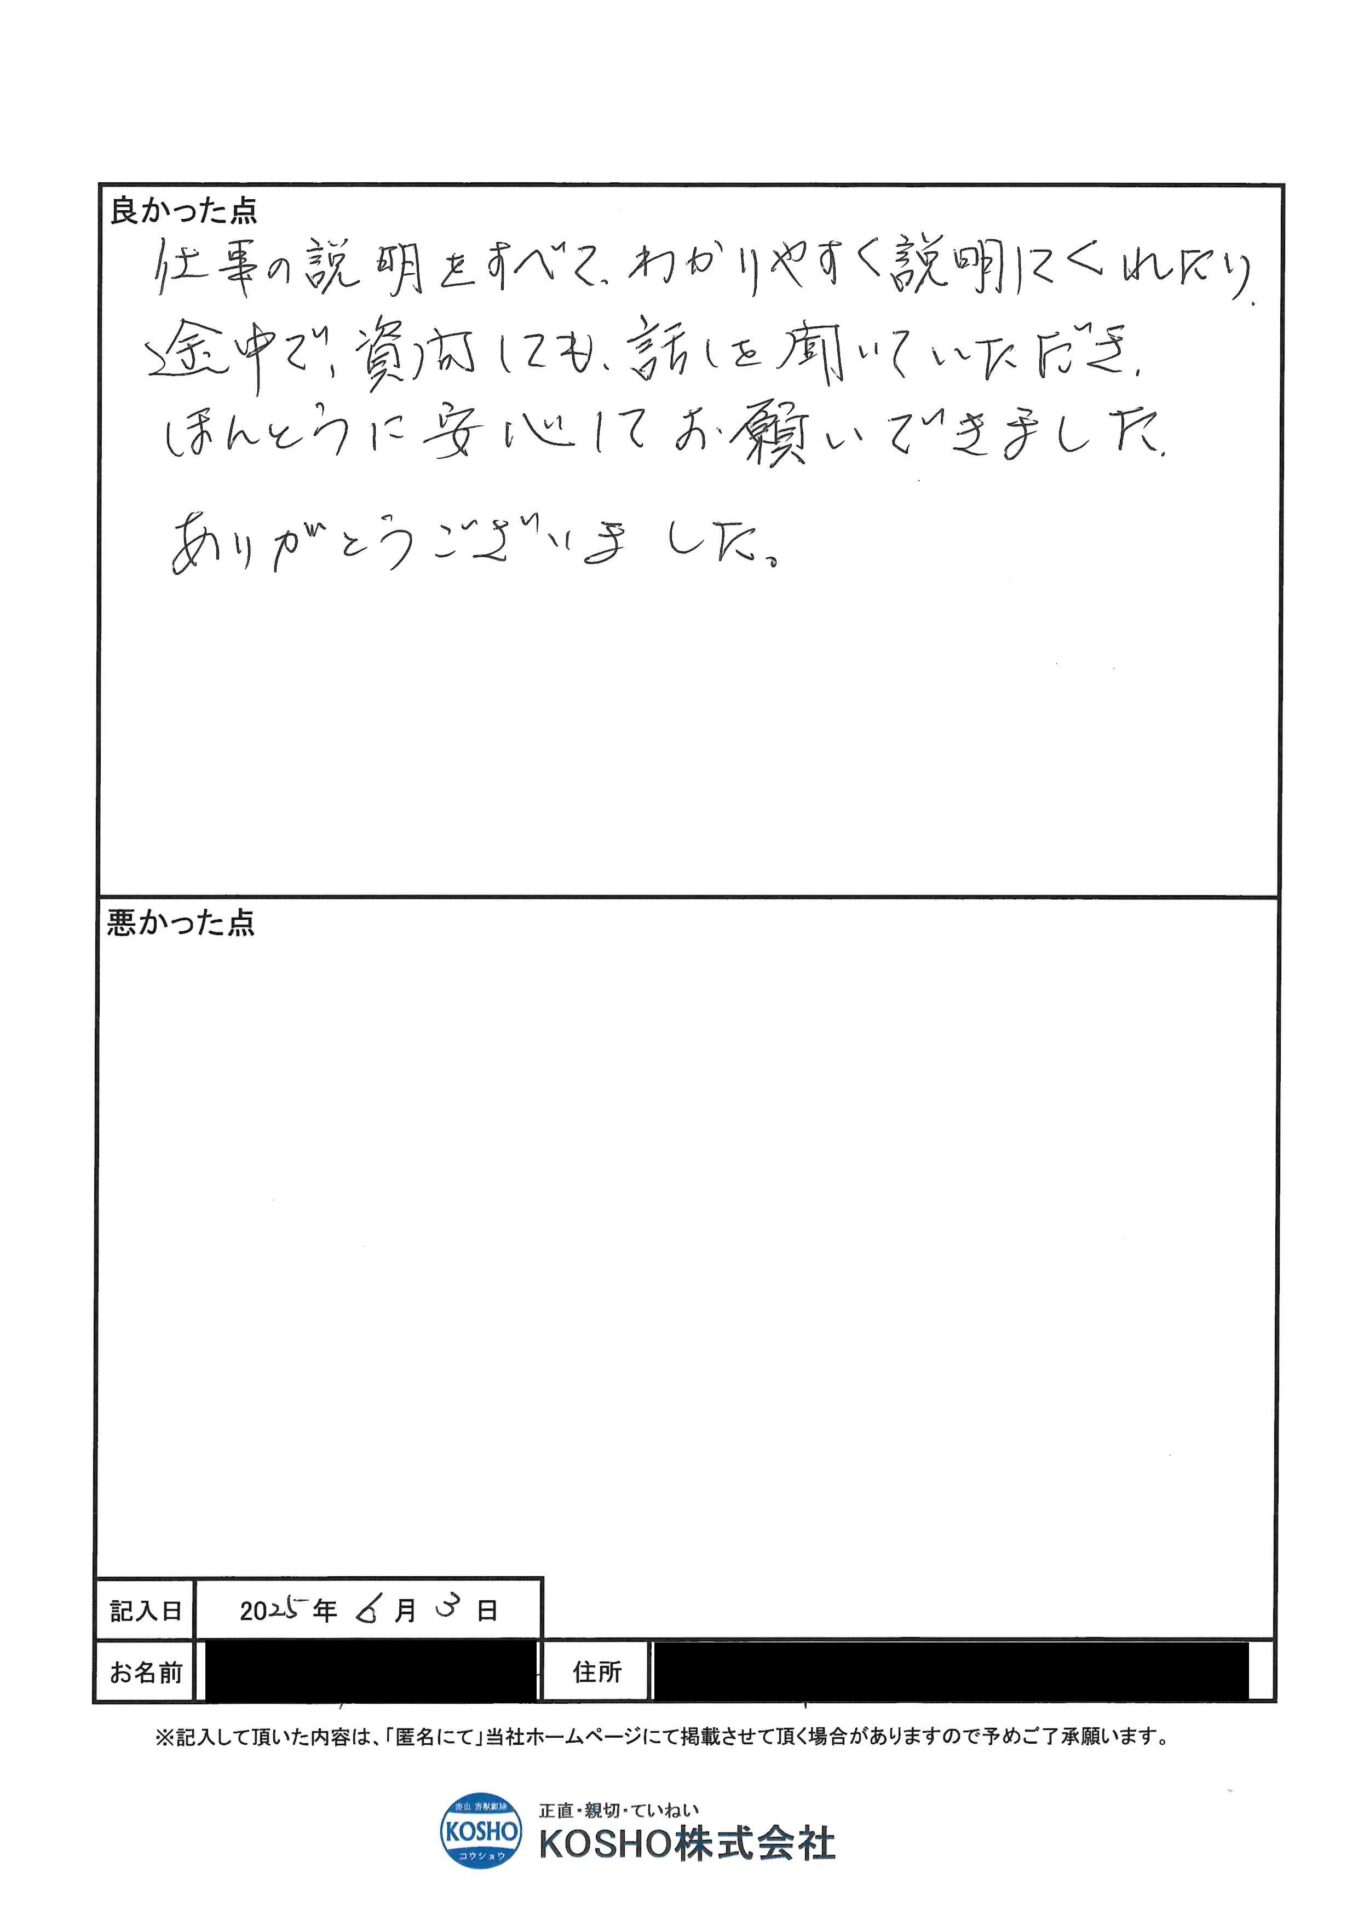 良かった点
仕事の説明をすべて、わかりやすく説明してくれたり、
途中で、質問しても、話しを聞いていただき、
ほんとうに安心してお願いできました。
ありがとうございました。
悪かった点
記入日 2025年 6月 3日
お名前 住所
※記入して頂いた内容は、「匿名にて」当社ホームページにて掲載させて頂く場合がありますので予めご了承願います。
害虫 害獣駆除
KOSHO
コウショウ
正直・親切・ていねい
KOSHO株式会社